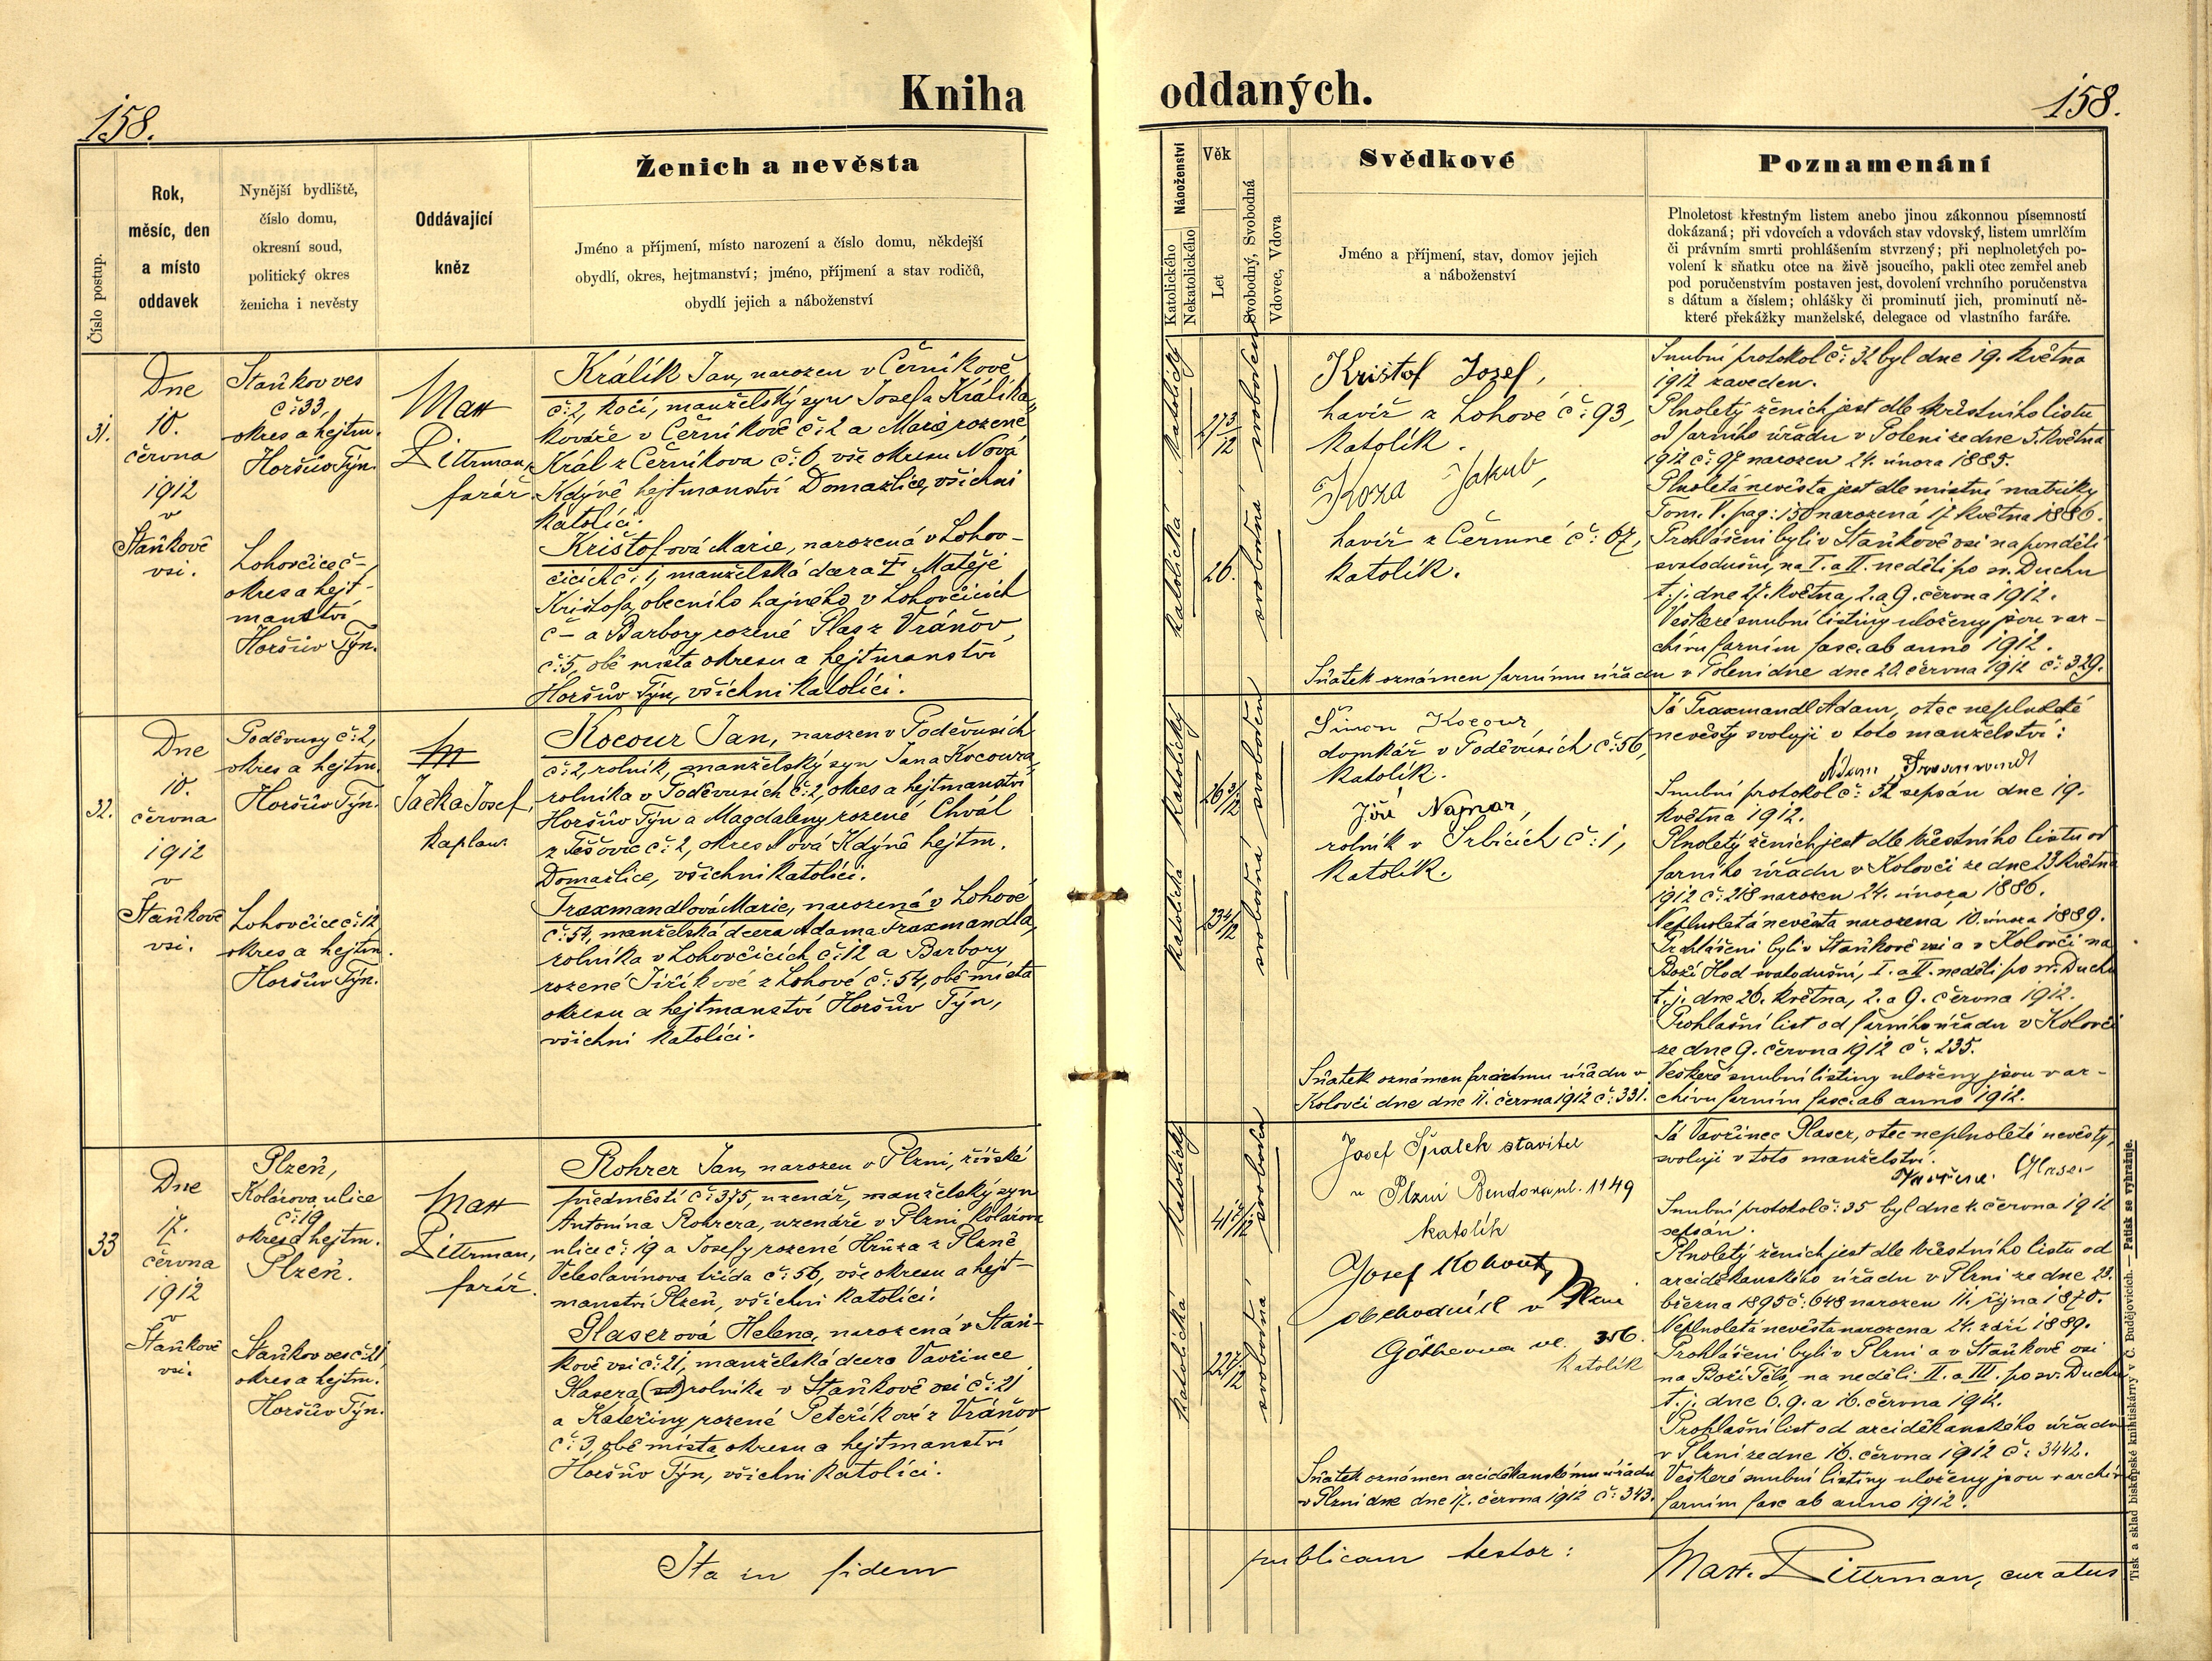 158.
Kniha
Číslo postup.
Rok,
měsíc, den
a místo
oddavek
Nynější bydliště,
číslo domu,
okresní soud,
politický okres
ženicha i nevěsty
Oddávající
kněz
Ženich a nevěsta
Jméno a příjmení, místo narození a číslo domu, někdejší
obydlí, okres, hejtmanství; jméno, příjmení a stav rodičů,
obydlí jejich a náboženství
31.
Dne
10.
června
1912
v
Staňkově
vsi.
Staňkov ves
č: 33,
okres a hejtm.
Horšův Týn.
Lohovčice č –,
okres a hejt-
manství
Horšův Týn.
Matt
Dittrman,
farář
Králík Jan, narozen v Černíkově
č: 2, kočí, manželský syn Josefa Králíka,
kováře v Černíkově č: 2 a Marie, rozené
Král z Černíkova č: 6, vše okresu Nová
Kdýně hejtmanství Domažlice, všichni
katolíci.
Krištofová Marie, narozená v Lohov-
čicích č: 1, manželská dcera † Matěje
Krištofa, obecního hajného v Lohovčicích
č – a Barbory rozené Plas z Vránov
č: 5, obě místa okresu a hejtmanství
Horšův Týn, všichni katolíci.
32.
Dne
10.
června
1912
v
Staňkově
vsi.
Poděvusy č: 2,
okres a hejtm.
Horšův Týn.
Lohovčice č: 12,
okres a hejtm.
Horšův Týn.
Jačka Josef,
kaplan.
Kocour Jan, narozen v Poděvusích
č: 2, rolník, manželský syn Jana Kocoura,
rolníka v Poděvusích č: 2, okres a hejtmanství
Horšův Týn a Magdaleny rozené Chvál
z Těšovic č: 2, okres Nová Kdýně hejtm.
Domažlice, všichni katolíci.
Traxmandlová Marie, narozená v Lohově
č: 54, manželská dcera Adama Traxmandla,
rolníka v Lohovčicích č: 12 a Barbory
rozené Jiříkové z Lohové č: 54, obě místa
okresu a hejtmanství Horšův Týn,
všichni katolíci.
33
Dne
17.
června
1912
v
Staňkově
vsi.
Plzeň,
Kolárova ulice
č: 19
okres a hejtm.
Plzeň.
Staňkov ves č: 21,
okres a hejtm.
Horšův Týn.
Matt
Dittrman,
farář.
Rohrer Jan, narozen v Plzni, říšské
předměstí č: 375, uzenář, manželský syn
Antonína Rohrera, uzenáře v Plzni Kolárova
ulice č: 19 a Josefy rozené Hrůza z Plzně
Veleslavínova třída č: 56, vše okresu a hejt-
manství Plzeň, všichni katolíci.
Glaserová Helena, narozená v Staň-
kově vsi č: 21, manželská dcera Vavřince
Glasera rolníka v Staňkově vsi č: 21
a Kateřiny rozené Peteříkové z Vránov
č: 3, obě místa okresu a hejtmanství
Horšův Týn, všichni katolíci.
Ita in fidem
oddaných.
158.
Náboženství
Katolického
Nekatolického
Věk
Let
Svobodný, Svobodná
Vdovec, Vdova
Svědkové
Jméno a příjmení, stav, domov jejich
a náboženství
Poznamenání
Plnoletost křestným listem anebo jinou zákonnou písemností
dokázaná; při vdovcích a vdovách stav vdovský, listem umrlčím
či právním smrti prohlášením stvrzený; při neplnoletých po-
volení k sňatku otce na živě jsoucího, pakli otec zemřel aneb
pod poručenstvím postaven jest, dovolení vrchního poručenstva
s dátum a číslem; ohlášky či prominutí jich, prominutí ně-
které překážky manželské, delegace od vlastního faráře.
katolický
27 3/12
svoboden
katolická
26.
svobodná
Krištof Josef,
havíř z Lohové č: 93,
katolík.
Koza Jakub,
havíř z Čermné č: 67,
katolík.
Snubní protokol č: 32 byl dne 19. května
1912 zaveden.
Plnoletý ženich jest dle křestního listu
od farního úřadu v Poleni ze dne 5. května
1912 č: 97 narozen 24. února 1885.
Plnoletá nevěsta jest dle místní matriky
Tom. V. pag: 150 narozená 17 května 1886.
Prohlášeni byli v Staňkově vsi na pondělí
svatodušní, na I. a II. neděli po sv. Duchu
t. j. dne 27. května, 2. a 9. června 1912.
Veškeré snubní listiny uloženy jsou v ar-
chívu farním fasc. ab anno 1912.
Sňatek oznámen farnímu úřadu v Poleni dne dne 20. června 1912 č: 329.
katolický
26 3/12
svoboden
katolická
23 4/12
svobodná
Šimon Kocour,
domkář v Poděvusích č: 56,
katolík.
Jiří Najmar,
rolník v Srbicích č: 1,
katolík.
Sňatek oznámen farnímu úřadu v
Kolovči dne dne 11. června 1912 č: 331.
Já Traxmandl Adam, otec neplnoleté
nevěsty svoluji v toto manželství:
Adam
Snubní protokol č: 32 sepsán dne 19.
května 1912.
Plnoletý ženich jest dle křestního listu od
farního úřadu v Kolovči ze dne 23 května
1912 č: 218 narozen 24. února 1886.
Neplnoletá nevěsta narozena 10. února 1889.
Prohlášeni byli v Staňkově vsi a v Kolovči na
Boží Hod svatodušní, I. a II. neděli po sv. Duchu
t. j. dne 26. května, 2. a 9. června 1912.
Prohlašní list od farního úřadu v Kolovči
ze dne 9. června 1912 č: 235.
Veškeré snubní listiny uloženy jsou v ar-
chívu farním fasc. ab anno 1912.
katolický
svoboden
katolická
svobodná
Josef Špalek stavitel
v Plzni Bendova ul. 1149
katolík
Josef Kohout,
obchodník v Plzni
Götheova ul. 356.
katolík
Sňatek oznámen arciděkanskému úřadu
v Plzni dne dne 17. června 1912 č: 343.
Já Vavřinec Glaser, otec neplnoleté nevěsty,
svoluji v toto manželství.
Vavřinec Glaser
Snubní protokol č: 35 byl dne června 1912
sepsán.
Plnoletý ženich jest dle křestního listu od
arciděkanského úřadu v Plzni ze dne 23.
března 1895 č: 648 narozen 11. října 1870.
Neplnoletá nevěsta narozena 24. září 1889.
Prohlášeni byli v Plzni a v Staňkově vsi
na Boží Tělo, na neděli II. a III. po sv. Duchu
t. j. dne 6. 9. a 16. června 1912.
Prohlašní list od arciděkanského úřadu
v Plzni ze dne 16. června 1912 č: 3442.
Veškeré snubní listiny uloženy jsou v archívu
farním fasc ab anno 1912.
publicam testor:
Matt. Dittrman, curatus
Tisk a sklad biskupské knihtiskárny v Č. Budějovicích. — Patisk se vyhražuje.